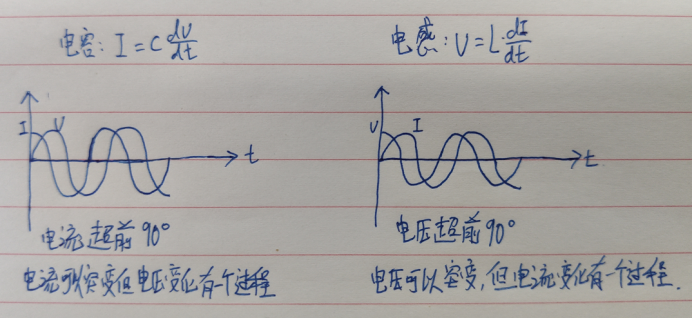 电容: I = C dU/dt
I U t
电流超前90°
电流可以突变但电压变化有一个过程
电感: U = L·dI/dt
U I t
电压超前90°
电压可以突变,但电流变化有一个过程.